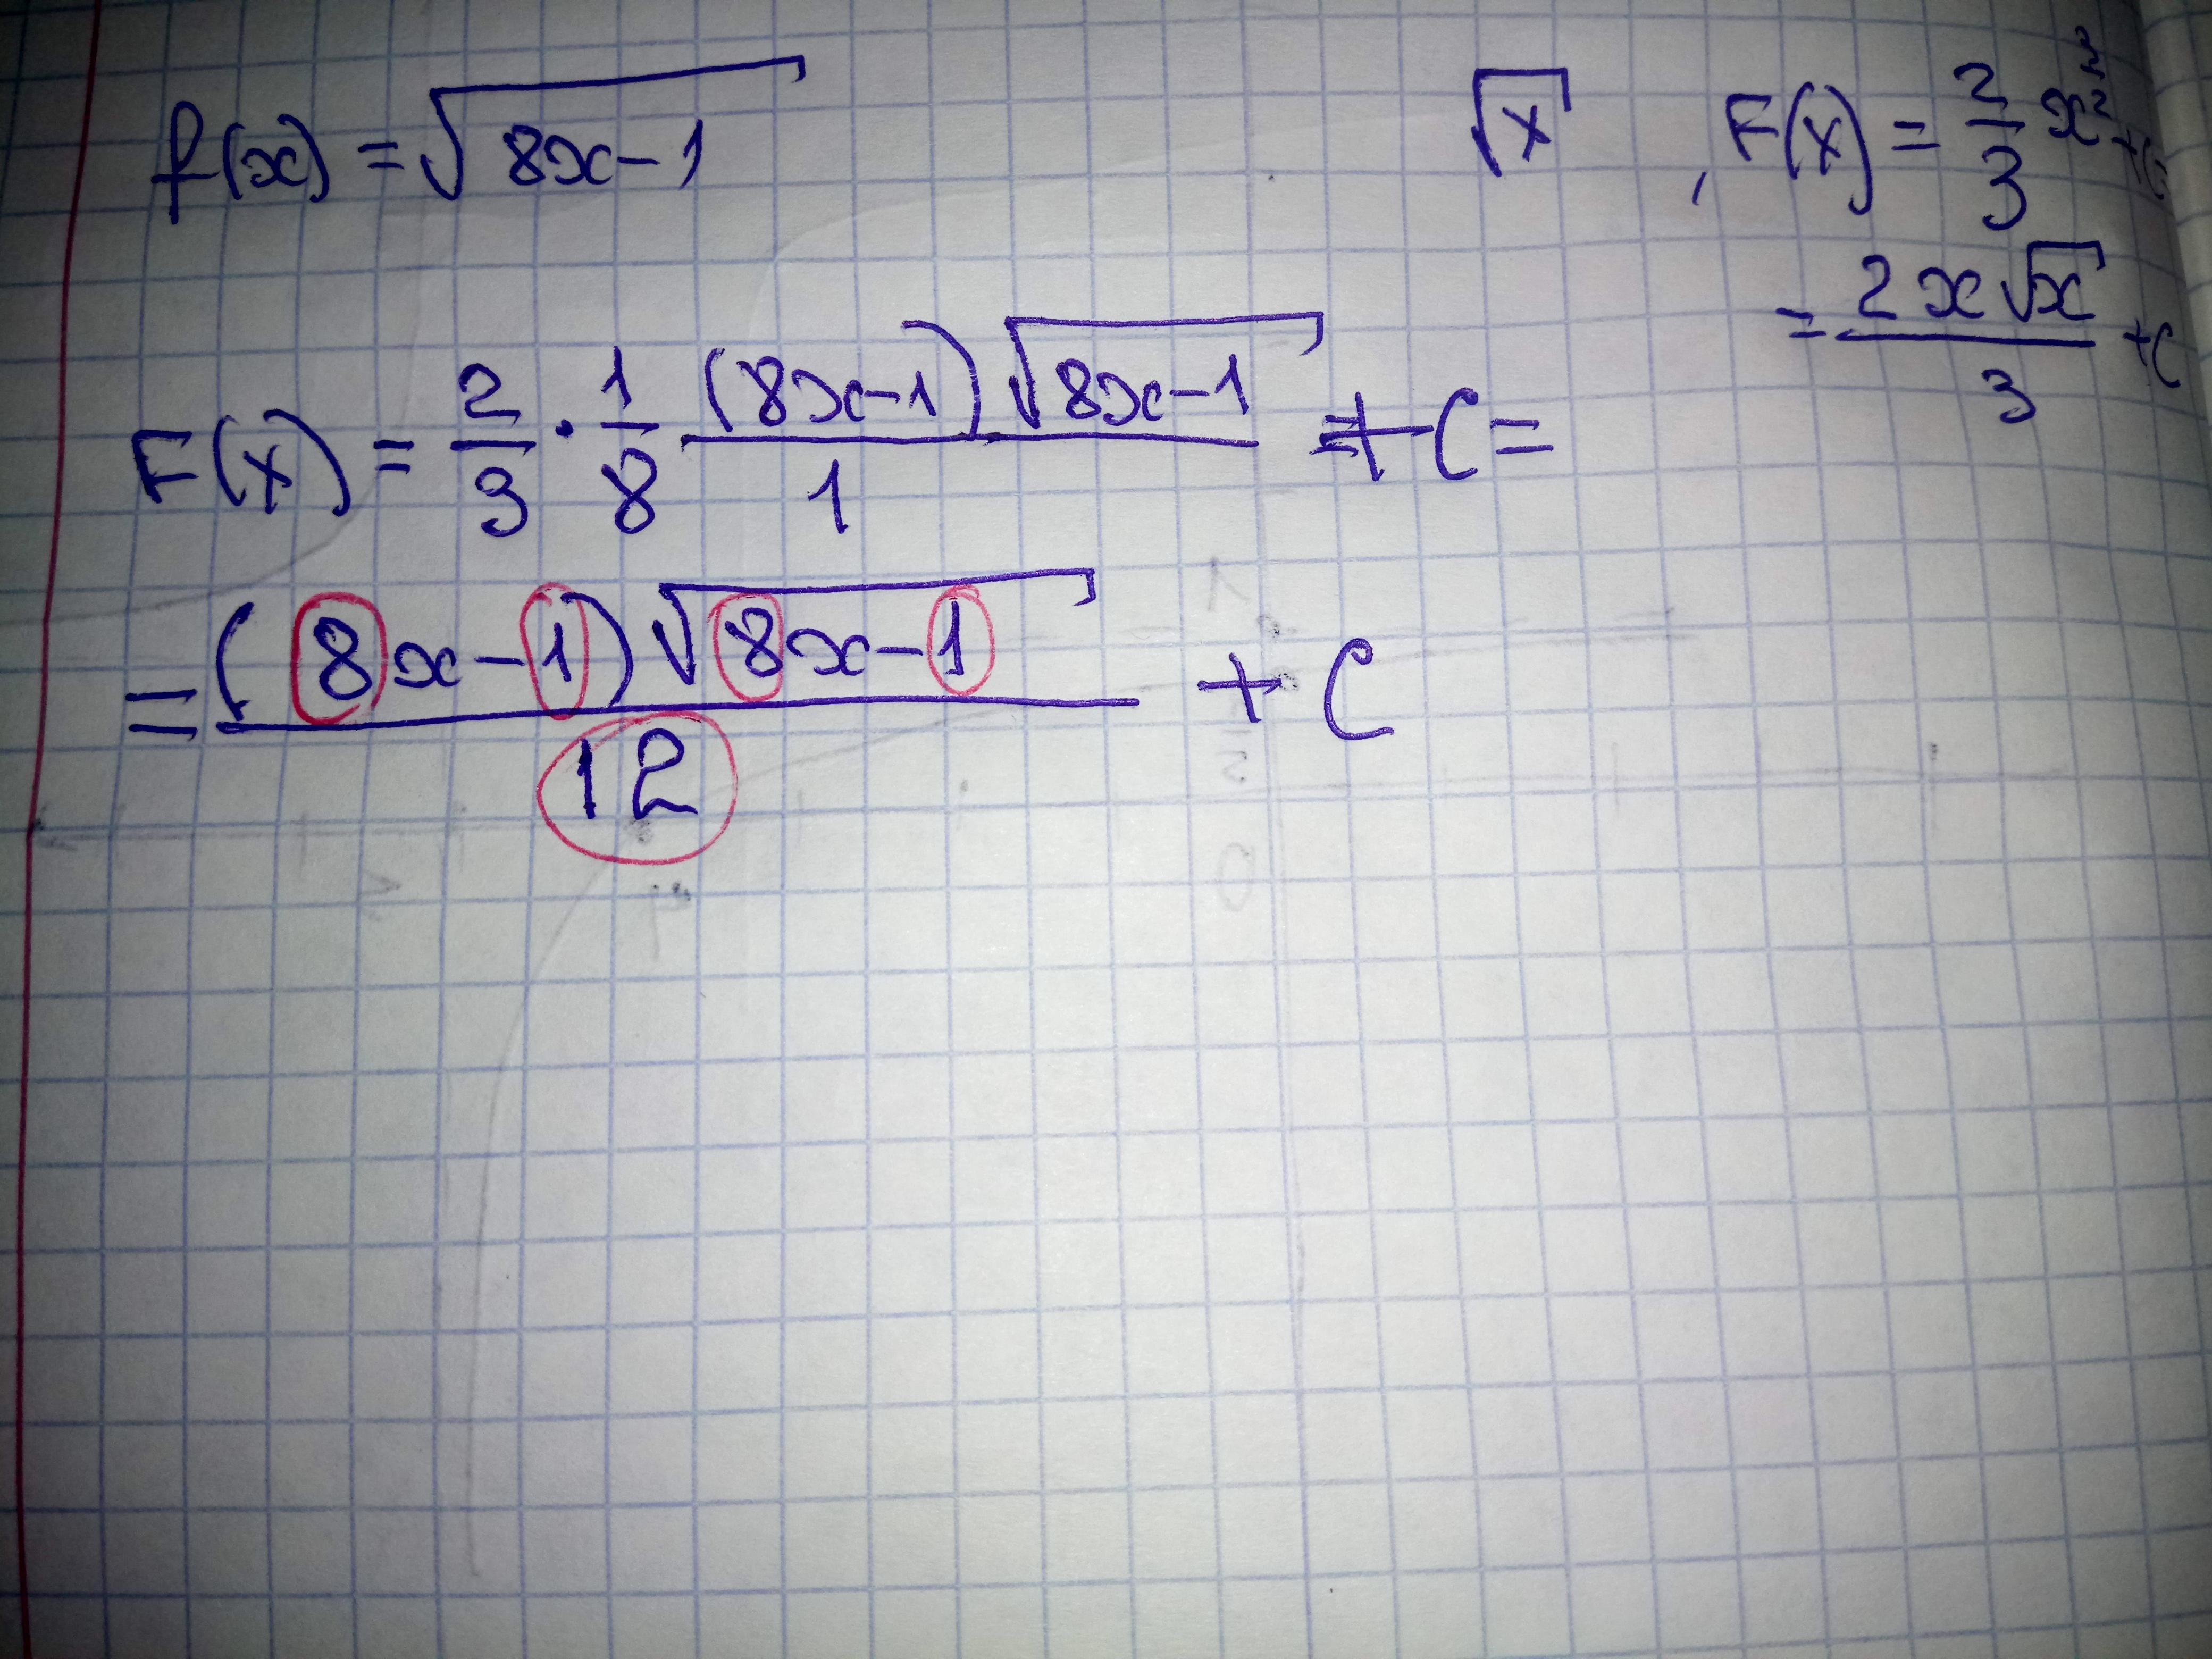 f(x) = √(8x-1)
√x , F(x) = 2/3 x^(3/2) + C
= 2x√x/3 + C
F(x) = 2/3 · 1/8 (8x-1)√(8x-1)/1 + C =
= (8x-1)√(8x-1)/12 + C